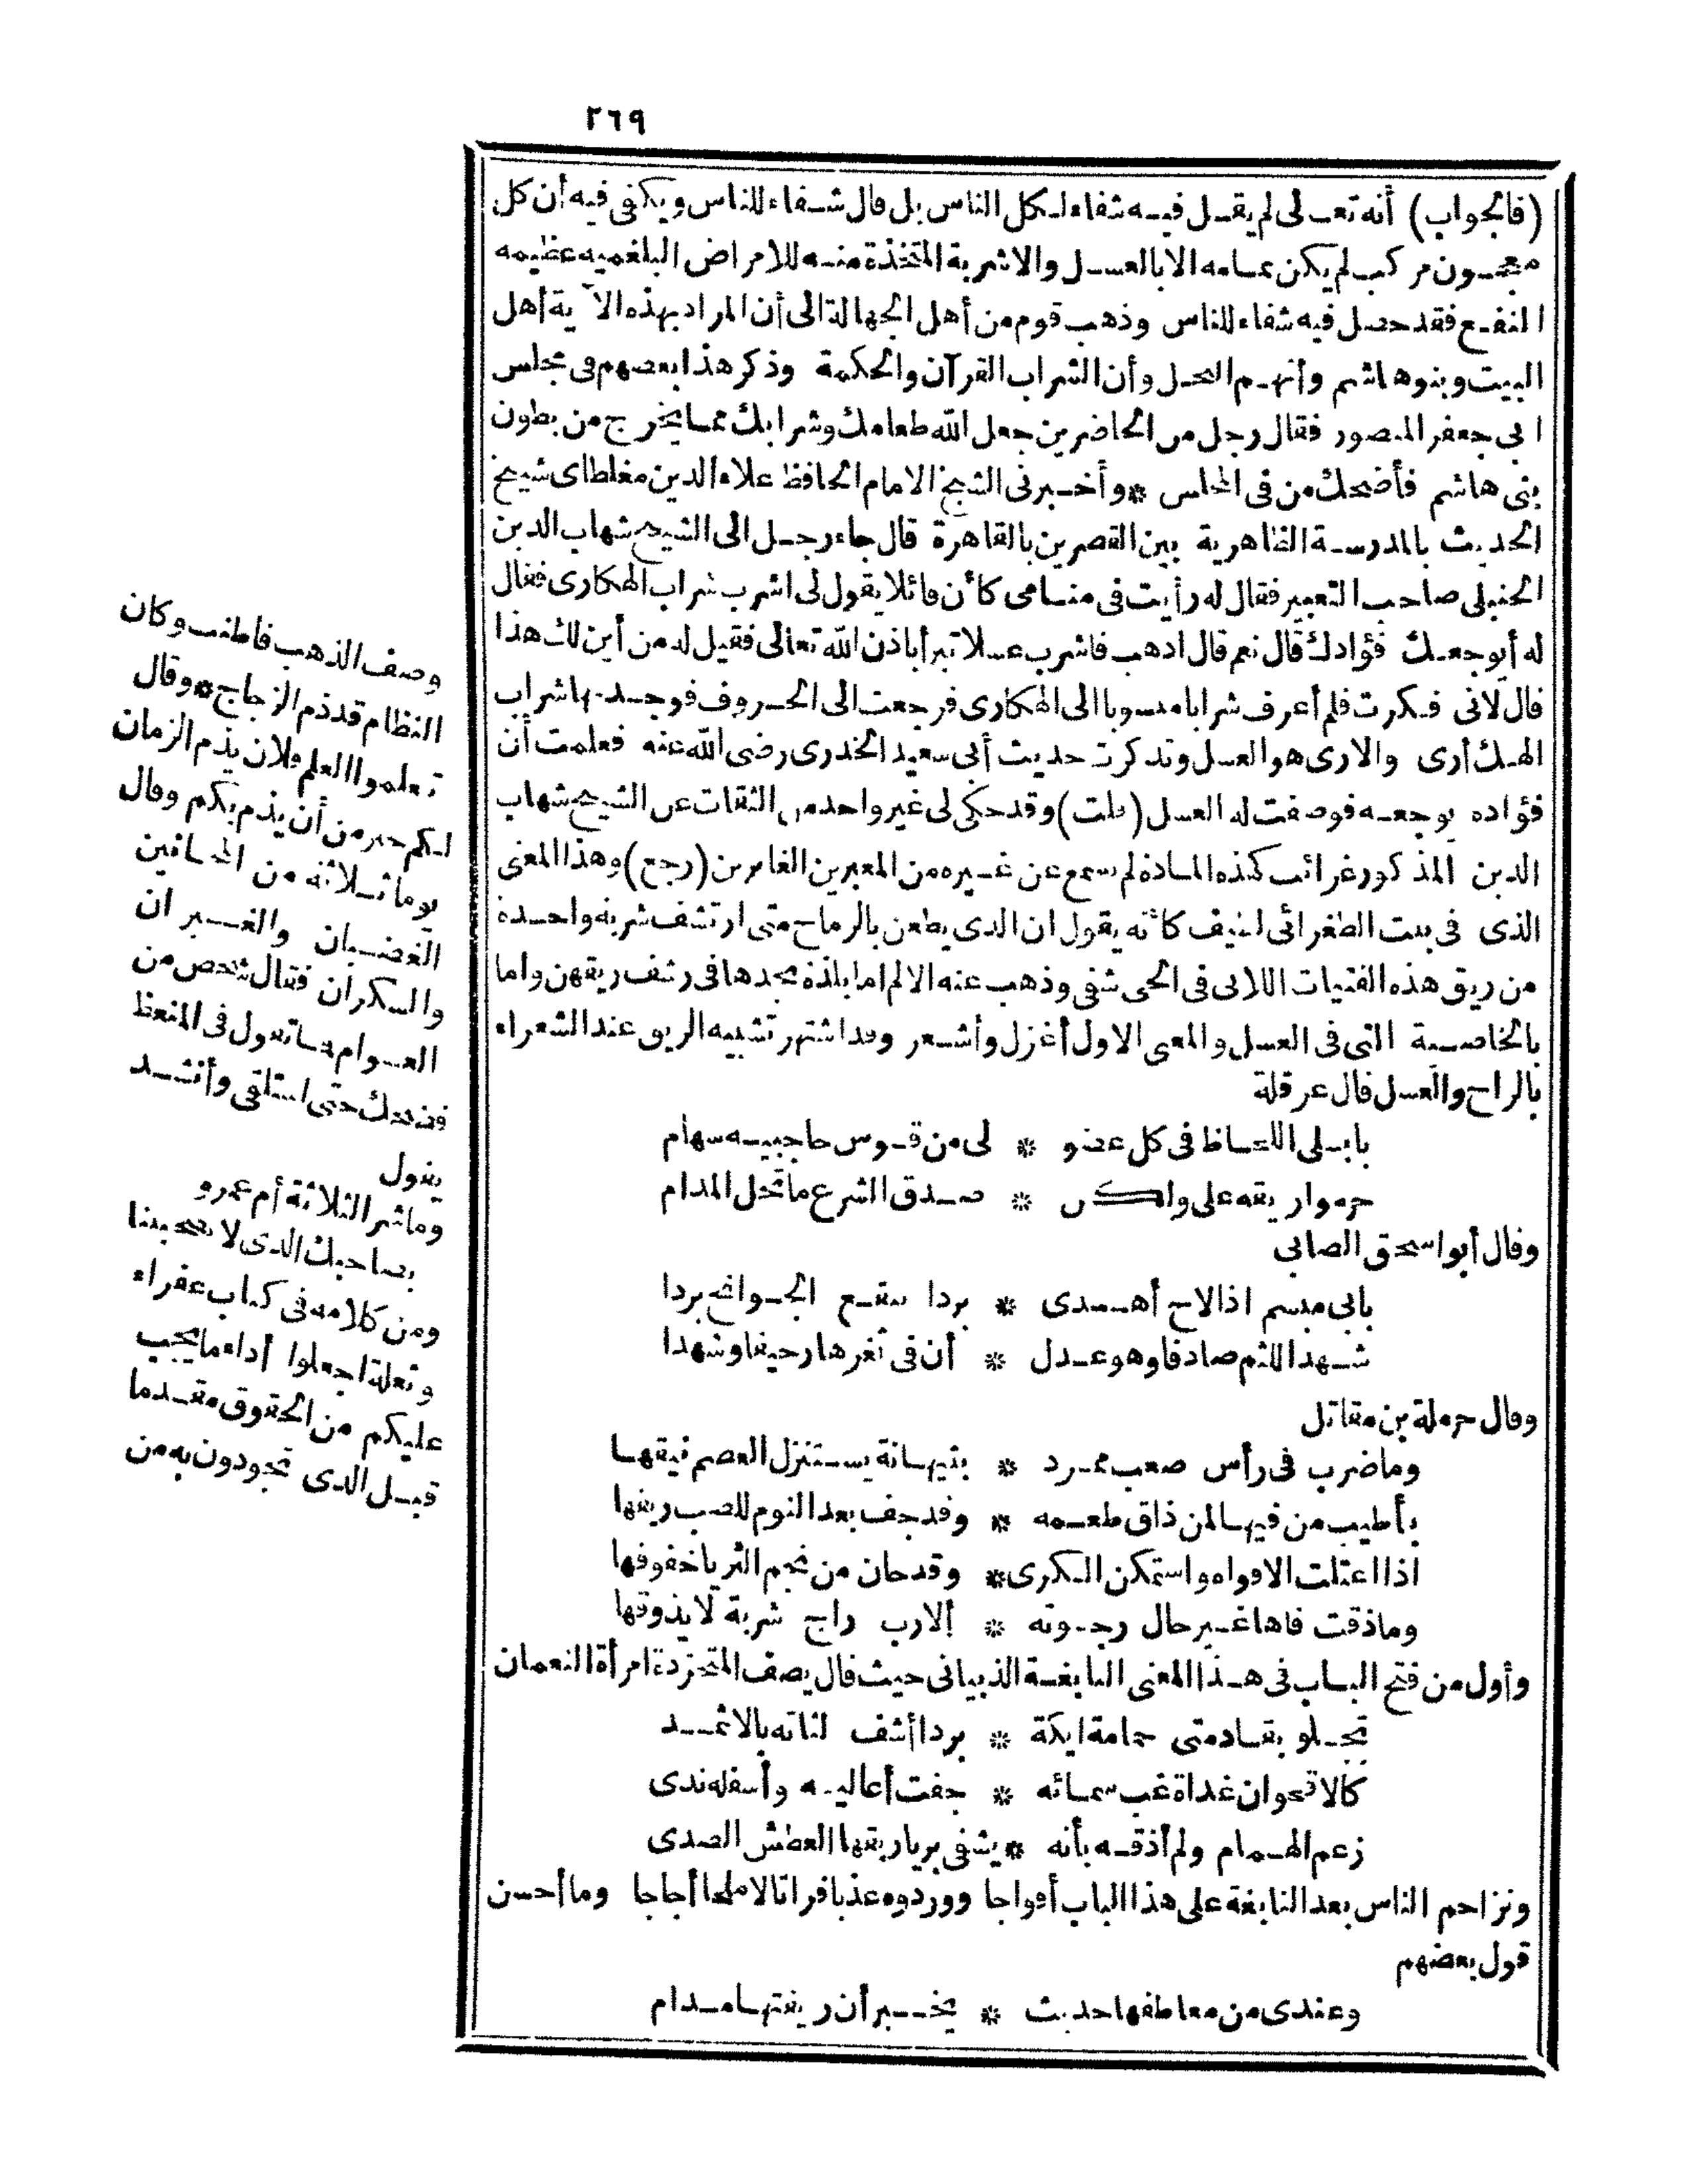 ٢٦٩
(فالجواب) أنه تعالى لم يقل فيه شفاء لكل الناس بل قال شفاء للناس ويكفى فيه أن كل
معجون مركب لم يكن تمامه الا بالعسل والاشربة المتخذة منه للامراض البلغميه عظيمه
النفع فقد حصل فيه شفاء للناس وذهب قوم من أهل الجهالة الى أن المراد بهذه الآية أهل
البيت وبنو هاشم وأنهم النحل وأن الشراب القرآن والحكمة وذكر هذا بعضهم فى مجلس
ابى جعفر المنصور فقال رجل من الحاضرين جعل الله طعامك وشرابك مما يخرج من بطون
بنى هاشم فأضحك من فى المجلس * وأخبرنى الشيخ الامام الحافظ علاء الدين مغلطاى شيخ
الحديث بالمدرسة الظاهرية بين القصرين بالقاهرة قال جاء رجل الى الشيخ شهاب الدين
الحنبلى صاحب التعبير فقال له رأيت فى منامى كأن قائلا يقول لى اشرب شراب الهكارى فقال
له أيوجعك فؤادك قال نعم قال ادهب فاشرب عسلا تبرأ باذن الله تعالى فقيل له من أين لك هذا
قال لانى فكرت فلم أعرف شرابا منسوبا الى الهكارى فرجعت الى الحروف فوجدتها شراب
الهك أرى والارى هو العسل وتذكرت حديث أبى سعيد الخدرى رضى الله عنه فعلمت أن
فؤاده يوجعه فوصفت له العسل (قلت) وقد حكى لى غير واحد من الثقات عن الشيخ شهاب
الدين المذكور غرائب كهذه المادة لم يسمع عن غيره من المعبرين الغابرين (رجع) وهذا المعنى
الذى فى بيت الطغرائى لطيف كأنه يقول ان الذى يطعن بالرماح متى ارتشف شربة واحدة
من ريق هذه الفتيات اللاتى فى الحى شفى وذهب عنه الالم اما بلذة يجدها فى رشف ريقهن واما
بالخاصية التى فى العسل والمعنى الاول أغزل وأشعر وقد اشتهر تشبيه الريق عند الشعراء
بالراح والعسل قال عرقلة
بابلى اللحاظ فى كل عضو * لى من قوس حاجبيه سهام
حرموا ريقه على ولكن * صدق الشرع ما تحل المدام
وقال أبو اسحق الصابى
بابى مبسم اذا لاح أهدى * بردا ينقع الجوانح بردا
شهد اللثم صادقا وهو عدل * أن فى ثغرها رحيقا وشهدا
وقال حرملة بن مقاتل
وما ضرب فى رأس صعب ممرد * بتيهانة يستنزل العصم نيقها
بأطيب من فيها لمن ذاق طعمه * وقد جف بعد النوم للصب ريقها
اذا اعتلت الافواه واستمكن الكرى * وقد حان من نجم الثريا خفوقها
وما ذقت فاها غير حال رجوته * ألا رب راج شربة لا يذوقها
وأول من فتح الباب فى هذا المعنى النابغة الذبيانى حيث قال يصف المتجردة امرأة النعمان
تجلو بقادمتى حمامة ايكة * بردا أشف لثاته بالاثمد
كالاقحوان غداة غب سمائه * جفت أعاليه وأسفله ندى
زعم الهمام ولم أذقه بأنه * يشفى بريا ريقها العطش الصدى
وتزاحم الناس بعد النابغة على هذا الباب أفواجا ووردوه عذبا فراتا لا ملحا أجاجا وما أحسن
قول بعضهم
وعندى من معاطفها حديث * يخبر أن ريقتها مدام
وصف الذهب فاطنب وكان
النظام قد ذم الزجاج * وقال
تعلموا العلم فلان يذم الزمان
لكم خير من أن يذم بكم وقال
يوما ثلاثة من المجانين
الغضبان والغيران
والسكران فقال شخص من
العوام ما تقول فى المنعظ
فضحك حتى استلقى وأنشد
يقول
وما شر الثلاثة أم عمرو
بصاحبك الذى لا تصحبينا
ومن كلامه فى كتاب عفراء
وثعلة اجعلوا أداء ما يجب
عليكم من الحقوق مقدما
قبل الذى تجودون به من